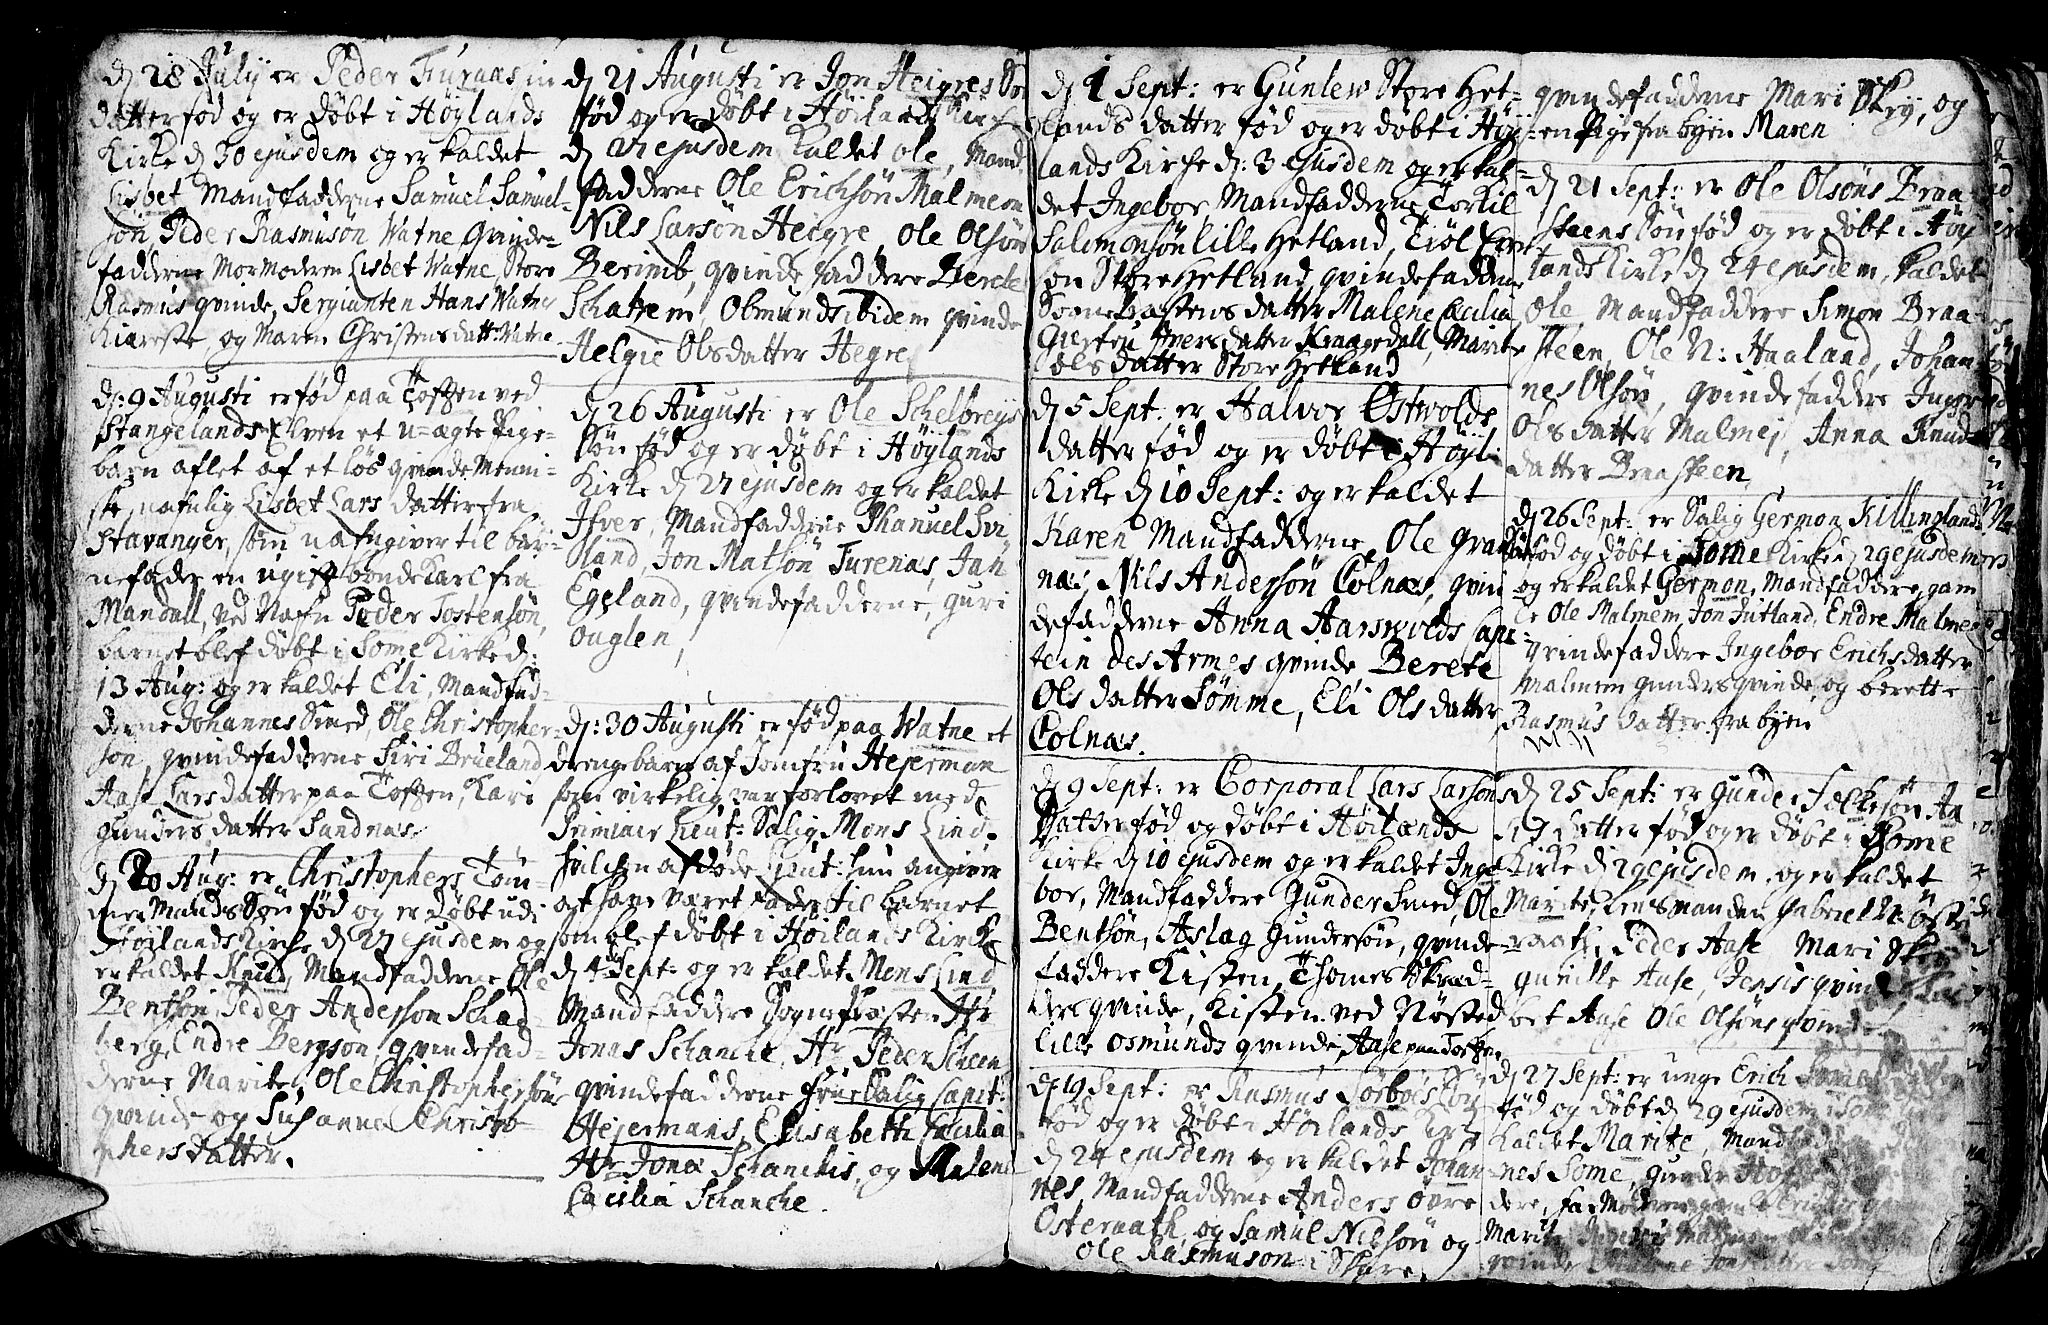 dj 28 Julij er Peder Furaas in
datter fød og er døbt i Høylands
Kirke dj 30 ejusdem og er kaldet
Lisbet, Mandfadderne Samuel Samuel-
søn, Peder Rasmusøn Watne, Qvinde-
fadderne Mormoderen Lisbet Watne, Store
Rasmus qvinde, Sergianten Hans Watne
Kiæreste, og Maren Christensdatt: Watne
dj: 9 Augusti er fød paa Toften ved
Stangelands Elven et u-ægte Pige-
barn aflet af et løs qvinde Menni-
ske, nafnlig Lisbet Lars datter fra
Stavanger, som udgiver til bar-
nefader en ugift bonde Karl fra
Mandall, ved Nafn Peder Tostensøn,
barnet blef døbt i Some Kirke d:
13 Aug: og er kaldet Eli, Mandfad-
derne Johannes Smed, Ole Christopher-
søn, qvindefadderne Siri Brueland
Aase Larsdatter paa Toften, Kari
Gunders datter Sandnæs.
dj 20 Aug: er Christophers Tom-
mer Mands Søn fød og er døbt udi
Høilands Kirche dj 27 ejusdem og
er kaldet Knud, Mandfadderne Ole
Bentsøn, Peder Andersson Schad-
berg, Endre Bergson, qvindefad-
derne Marite, Ole Christophersøns
qvinde og Susanna Christo-
phersdatter.
dj 21 Augusti er Jon Heigres Sø
fød og er døbt i Høilands Kirch
dj 27 ejusdem Kaldet Ole, Mand
fadderne Ole Erichsøn Malmem
Nils Larsøn Heigre, Ole Olsøn
Berimb, qvinde faddere Berete
Schatzem, Osmunds ibidem qvinde
Helgie Olsdatter Hegre
dj 26 Augusti er Ole Schelbreijs
Søn fød og er døbt i Høylands
Kirke dj 27 ejusdem og er kaldet
Ifver, Mandfadderne Phanuel Svi
land, Jon Matsøn Furenas, Jan
Egeland, qvindefadderne, guri
Ouglen,
dj: 30 Augusti er fød paa Watne et
drengebarn af Jomfru Hejerman
som virkelig var forlovet med
Primair Lieut: Salig Mons Lind-
hun angiver
at have været fader til barnet
som blef døbt i Høilands Kirke
dj 4 Sept: og er kaldet Mens Lind
Mandfaddere Sogne Præsten Hr
Jonas Schanche, Hr Peder Scheen
qvindefadderne Frue Salig Capit:
Hejermans, Elisabeth Cecilia
Hr Jona Schanchis, og Malene
Cæcilia Schanche.
dj 1 Sept: er Gunlew Store Het-
lands datter fød og er døbt i Høij-
lands Kirche dj: 3 ejusdem og er kal-
det Ingebor, Mandfadderne Torkil
Salomonsøn lille Hetland, Tiøl
søn Store Hetland, qvindefadderne
Sogne Præstens datter Malene Cæcilia
Iversdatter Kraagedall, Marite
Olsdatter Store Hetland
dj 5 Sept: er Halvor Østvolds
datter fød og er døbt i Høyl:
Kirke dj 10 Sept: og er kaldet
Karen Mandfadderne, Ole
næs, Nils Andersøn Colnæs, qvin
defadderne Anna Aarsvolds Cape-
tein des Armes qvinde Berete
Olsdatter Sømme, Eli Olsdatter
Colnæs.
dj 9 Sept: er Corporal Lars Larsøns
Datter fød og døbt i Høilands
Kirke dj 10 ejusdem og er kaldet Inge
bor, Mandfaddere Gunder Smed, Ole
Bentsøn, Aslag Gundersøn, qvinde-
faddere Kisten, Thomes Skræd-
ders qvinde, Kisten ved Nøsted
lille Osmunds qvinde, Aase paa Toften
dj 19 Sept: er Rasmus Sørbøes Søn
fød og er døbt i Høilands Kirke
dj 24 ejusdem og er kaldet Johan-
nes, Mandfadderne Anders Øvre
Osteraath, og Samul Nilsøn og
Ole Rasmuson i Skare
qvindefadderne Mari Skey, og
en Pige fra byen Maren
dj 21 Sept: er Ole Olsøns Braa
steens Søn fød og er døbt i Høy
lands Kirke dj 24 ejusdem, kaldet
Ole, Mandfaddere Simon Braa
steen, Ole N: Haaland, Johan
nes Olsøn, qvindefaddere Ingerd
Olsdatter Malmej, Anna Knuds
datter Braasteen,
dj 26 Sept: er Salig Germon Killingland
Søn fød og døbt i Some Kirke dj 29 ejusdem
og er kaldet Germon, Mandfaddere, gam
le Ole Malmem, Jon Jutland, Endre Malmei
qvindefaddere Ingebor Erichsdatter
Malmem gunders qvinde, og berette
Rasmus datter fra byen
dj 25 Sept: er gunder Folkesøn Aa
ses datter fød og er døbt i Some
Kirke dj 29 ejusdem, og er kaldet
Marite, Lensmanden Gabriel N: Øste
raath, Peder Aase Mari Skei
gunille Aase, Jensis qvinde
bet Aase Ole Olsøns qvinde
dj 27 Sept: er unge Erich
fød og døbt dj 29 ejusdem i Some
Kaldet Marite, Mandfad
nes Some, gunder
dere, Far Moderen
Marit
qvinde Malene Jonsdatter Some